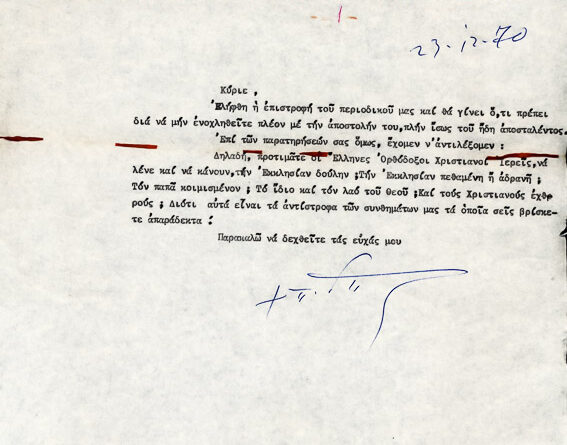 1
23-12-70
Κύριε ,
Ἐλήφθη ἡ ἐπιστροφή τοῦ περιοδικοῦ μας καί θά γίνει ὅ,τι πρέπει
διά νά μήν ἐνοχληθεῖτε πλέον μέ τήν ἀποστολήν του,πλήν ἴσως τοῦ ἤδη ἀποσταλέντος.
Ἐπί τῶν παρατηρήσεών σας ὅμως, ἔχομεν ν'ἀντιλέξομεν :
Δηλαδή, προτιμᾶτε οἱ Ἕλληνες Ὀρθόδοξοι Χριστιανοί Ἱερεῖς,νά
λένε καί νά κάνουν,τήν Ἐκκλησίαν δούλην ;Τήν Ἐκκλησίαν πεθαμένη ἤ ἀδρανῆ ;
Τόν παπᾶ κοιμισμένον ; Τό ἴδιο καί τόν λαό τοῦ θεοῦ ;Καί τούς Χριστιανούς ἐχθ-
ρούς ; Διότι αὐτά εἶναι τά ἀντίστροφα τῶν συνθημάτων μας τά ὁποῖα σεῖς βρίσκε-
τε ἀπαράδεκτα !
Παρακαλῶ νά δεχθεῖτε τάς εὐχάς μου